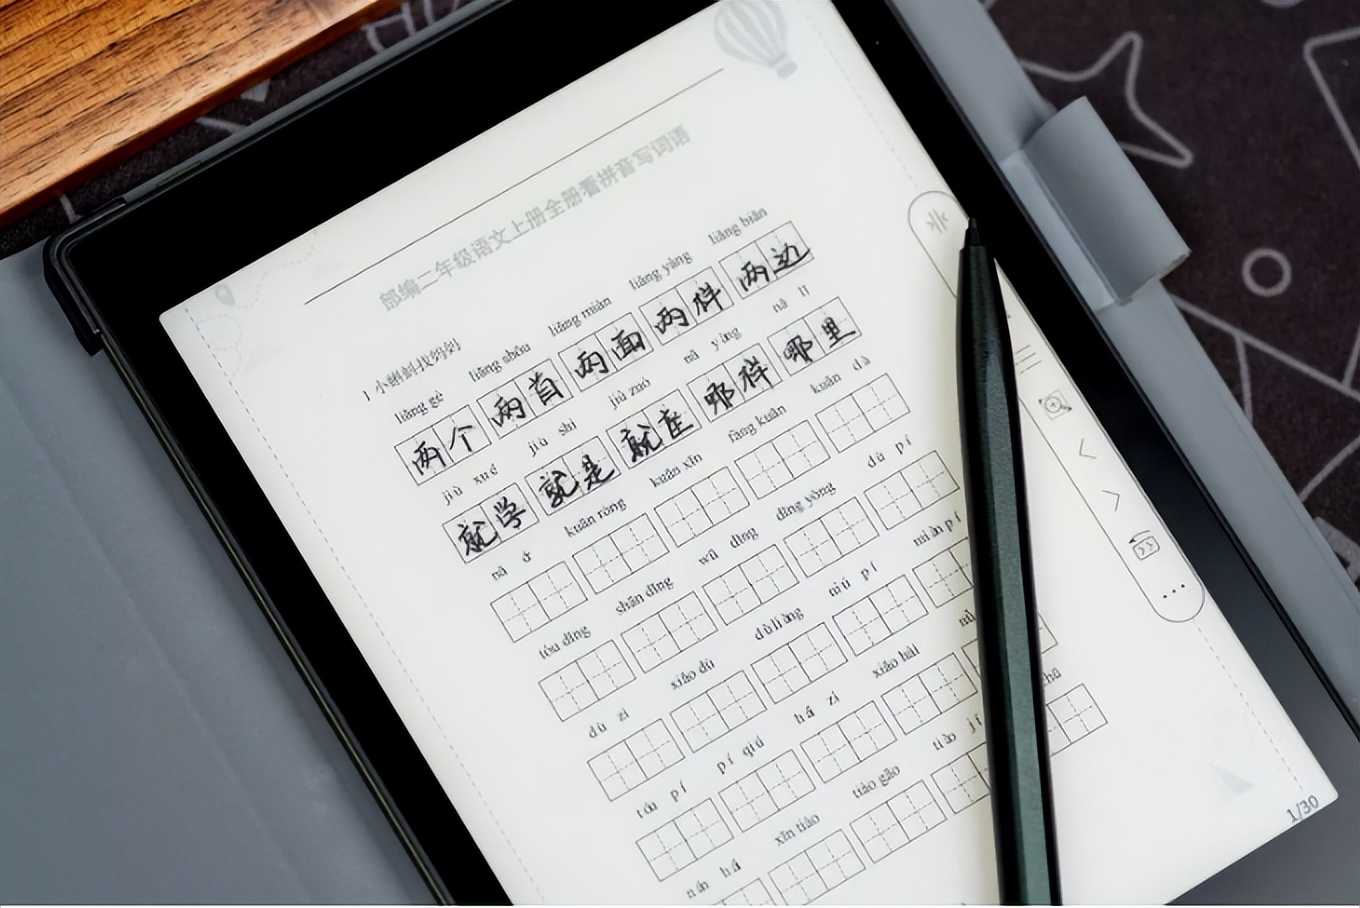 部编二年级语文上册全册看拼音写词语
1 小蝌蚪找妈妈
liǎng gè liǎng shǒu liǎng miàn liǎng yàng liǎng biān
两个 两首 两面 两样 两边
jiù xué jiù shì jiù zuò nǎ yàng nǎ lǐ
就学 就是 就座 哪样 哪里
nǎ ér kuān róng kuān xīn fàng kuān kuān dà
tóu dǐng shān dǐng wū dǐng dǐng yòng dù pí
dù zi xiǎo dù dù liàng niú pí miàn pí
tóu pí pí qiú hái zi xiǎo hái
nán hái xīn tiào tiào gāo tiào
1/30